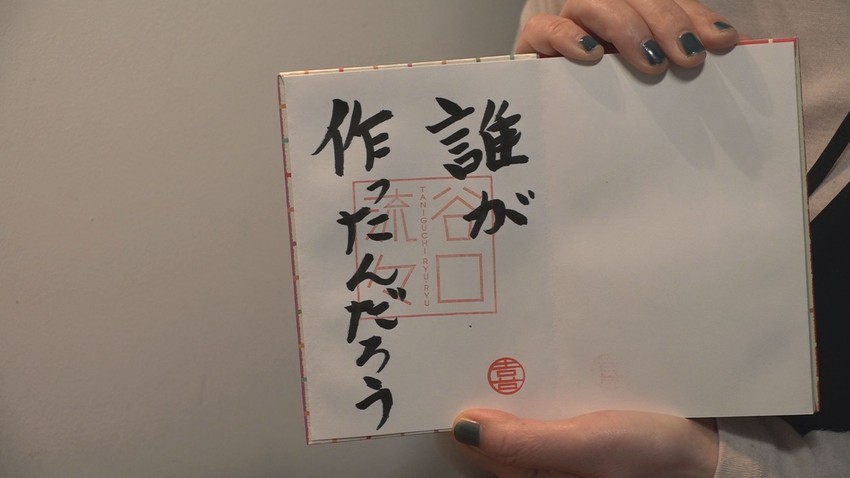 誰が
作ったんだろう
谷口
流々
TANIGUCHI RYU-RYU
喜